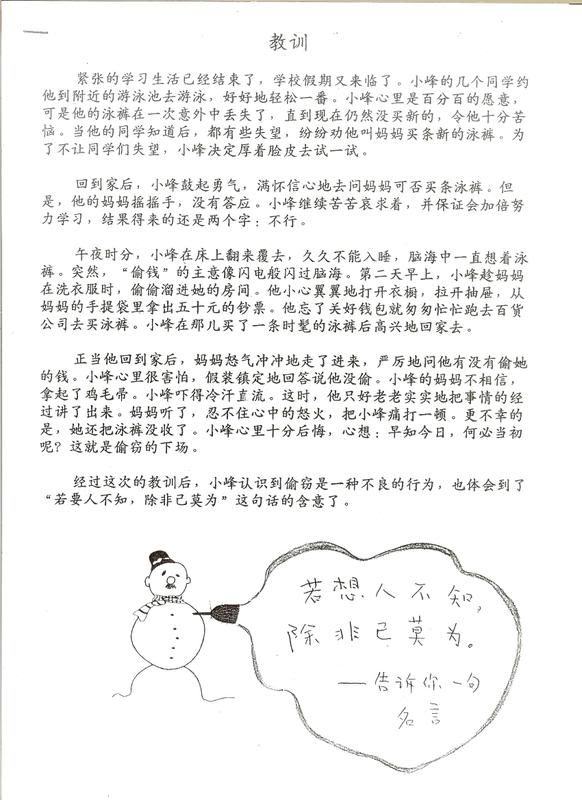 教训
紧张的学习生活已经结束了，学校假期又来临了。小峰的几个同学约
他到附近的游泳池去游泳，好好地轻松一番。小峰心里是百分百的愿意，
可是他的泳裤在一次意外中丢失了，直到现在仍然没买新的，令他十分苦
恼。当他的同学知道后，都有些失望，纷纷劝他叫妈妈买条新的泳裤。为
了不让同学们失望，小峰决定厚着脸皮去试一试。
回到家后，小峰鼓起勇气，满怀信心地去问妈妈可否买条泳裤。但
是，他的妈妈摇摇手，没有答应。小峰继续苦苦哀求着，并保证会加倍努
力学习，结果得来的还是两个字：不行。
午夜时分，小峰在床上翻来覆去，久久不能入睡，脑海中一直想着泳
裤。突然，“偷钱”的主意像闪电般闪过脑海。第二天早上，小峰趁妈妈
在洗衣服时，偷偷溜进她的房间。他小心翼翼地打开衣橱，拉开抽屉，从
妈妈的手提袋里拿出五十元的钞票。他忘了关好钱包就匆匆忙忙跑去百货
公司去买泳裤。小峰在那儿买了一条时髦的泳裤后高兴地回家去。
正当他回到家后，妈妈怒气冲冲地走了进来，严厉地问他有没有偷她
的钱。小峰心里很害怕，假装镇定地回答说他没偷。小峰的妈妈不相信，
拿起了鸡毛帚。小峰吓得冷汗直流。这时，他只好老老实实地把事情的经
过讲了出来。妈妈听了，忍不住心中的怒火，把小峰痛打一顿。更不幸的
是，她还把泳裤没收了。小峰心里十分后悔，心想：早知今日，何必当初
呢？这就是偷窃的下场。
经过这次的教训后，小峰认识到偷窃是一种不良的行为，也体会到了
“若要人不知，除非己莫为”这句话的含意了。
若想人不知，
除非己莫为。
——告诉你一句
名言